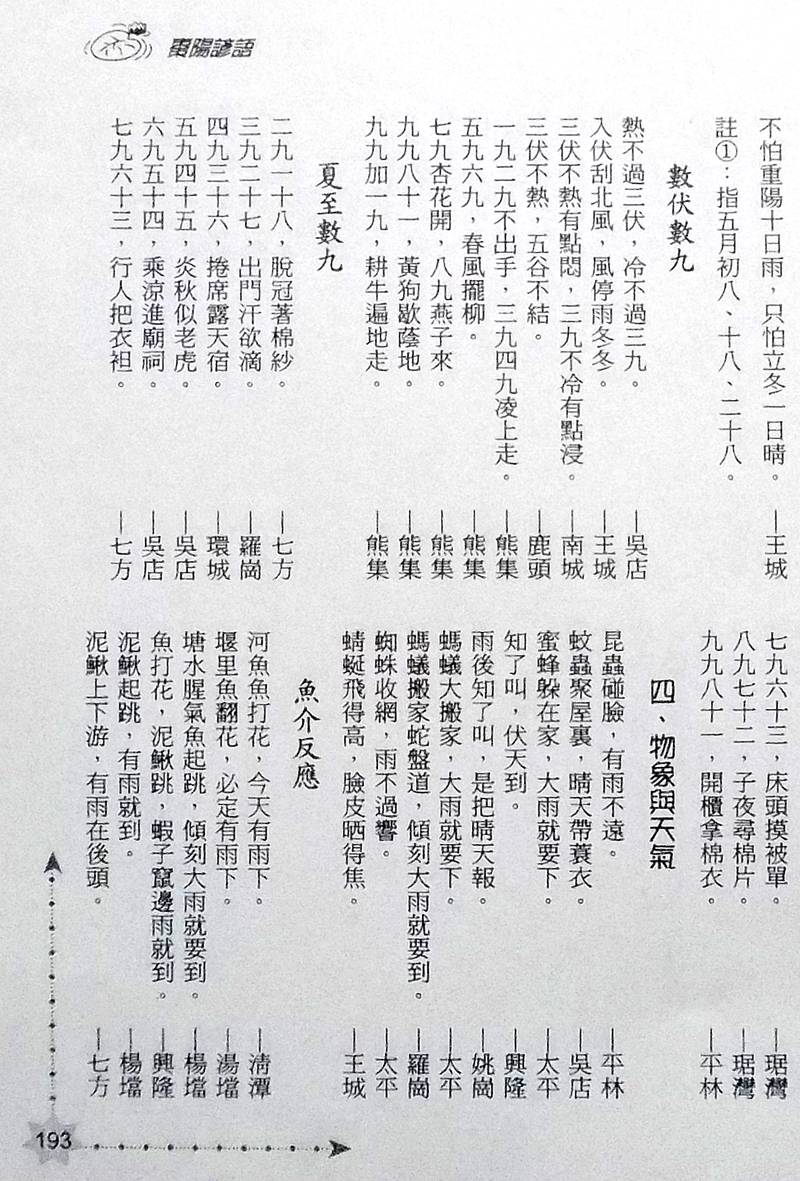 棗陽諺語
不怕重陽十日雨，只怕立冬一日晴。—王城
註①：指五月初八、十八、二十八。
數伏數九
熱不過三伏，冷不過三九。—吳店
入伏刮北風，風停雨冬冬。—王城
三伏不熱有點悶，三九不冷有點浸。—南城
三伏不熱，五谷不結。—鹿頭
一九二九不出手，三九四九凌上走。—熊集
五九六九，春風擺柳。—熊集
七九杏花開，八九燕子來。—熊集
九九八十一，黃狗歇蔭地。—熊集
九九加一九，耕牛遍地走。—熊集
夏至數九
二九一十八，脫冠著棉紗。—七方
三九二十七，出門汗欲滴。—羅崗
四九三十六，捲席露天宿。—環城
五九四十五，炎秋似老虎。—吳店
六九五十四，乘涼進廟祠。—吳店
七九六十三，行人把衣袒。—七方
七九六十三，床頭摸被單。—琚灣
八九七十二，子夜尋棉片。—琚灣
九九八十一，開櫃拿棉衣。—平林
四、物象與天氣
昆蟲碰臉，有雨不遠。—平林
蚊蟲聚屋裏，晴天帶蓑衣。—吳店
蜜蜂躲在家，大雨就要下。—太平
知了叫，伏天到。—興隆
雨後知了叫，是把晴天報。—姚崗
螞蟻大搬家，大雨就要下。—太平
螞蟻搬家蛇盤道，傾刻大雨就要到。—羅崗
蜘蛛收網，雨不過響。—太平
蜻蜓飛得高，臉皮晒得焦。—王城
魚介反應
河魚魚打花，今天有雨下。—清潭
堰里魚翻花，必定有雨下。—湯壋
塘水腥氣魚起跳，傾刻大雨就要到。—楊壋
魚打花，泥鰍跳，蝦子竄邊雨就到。—興隆
泥鰍起跳，有雨就到。—楊壋
泥鰍上下游，有雨在後頭。—七方
193